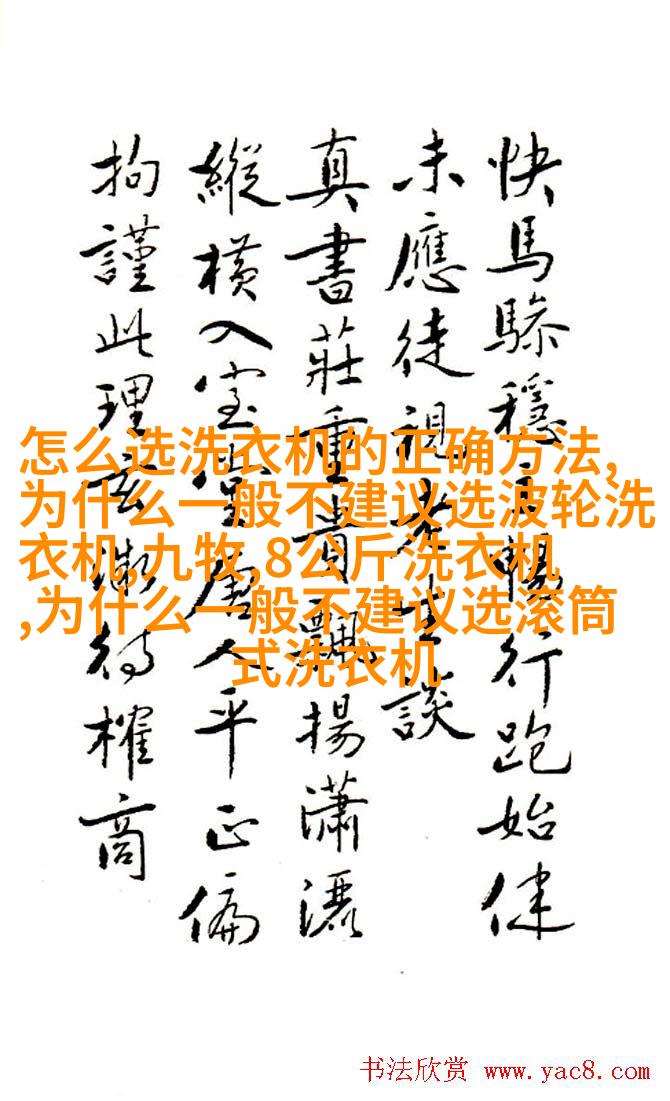 快馬穩暢行跑始健
未應徒視老生談
真書莊重貴飄揚瀟灑
縱橫入室唐人平正偏
拘謹此理待榷商
怎么选洗衣机的正确方法,
为什么一般不建议选波轮洗
衣机,九牧,8公斤洗衣机
,为什么一般不建议选滚筒
式洗衣机
书法欣赏 www.yac8.com